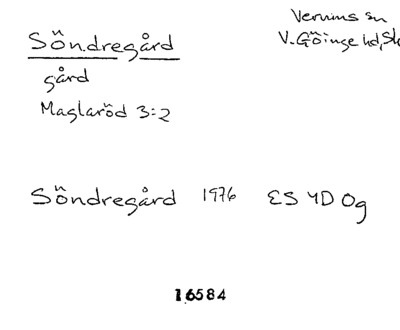 Söndregård
gård
Maglaröd 3:2
Verums sn
V. Göinge hd, Sk
Söndregård 1976 ES 4D 0g
16584